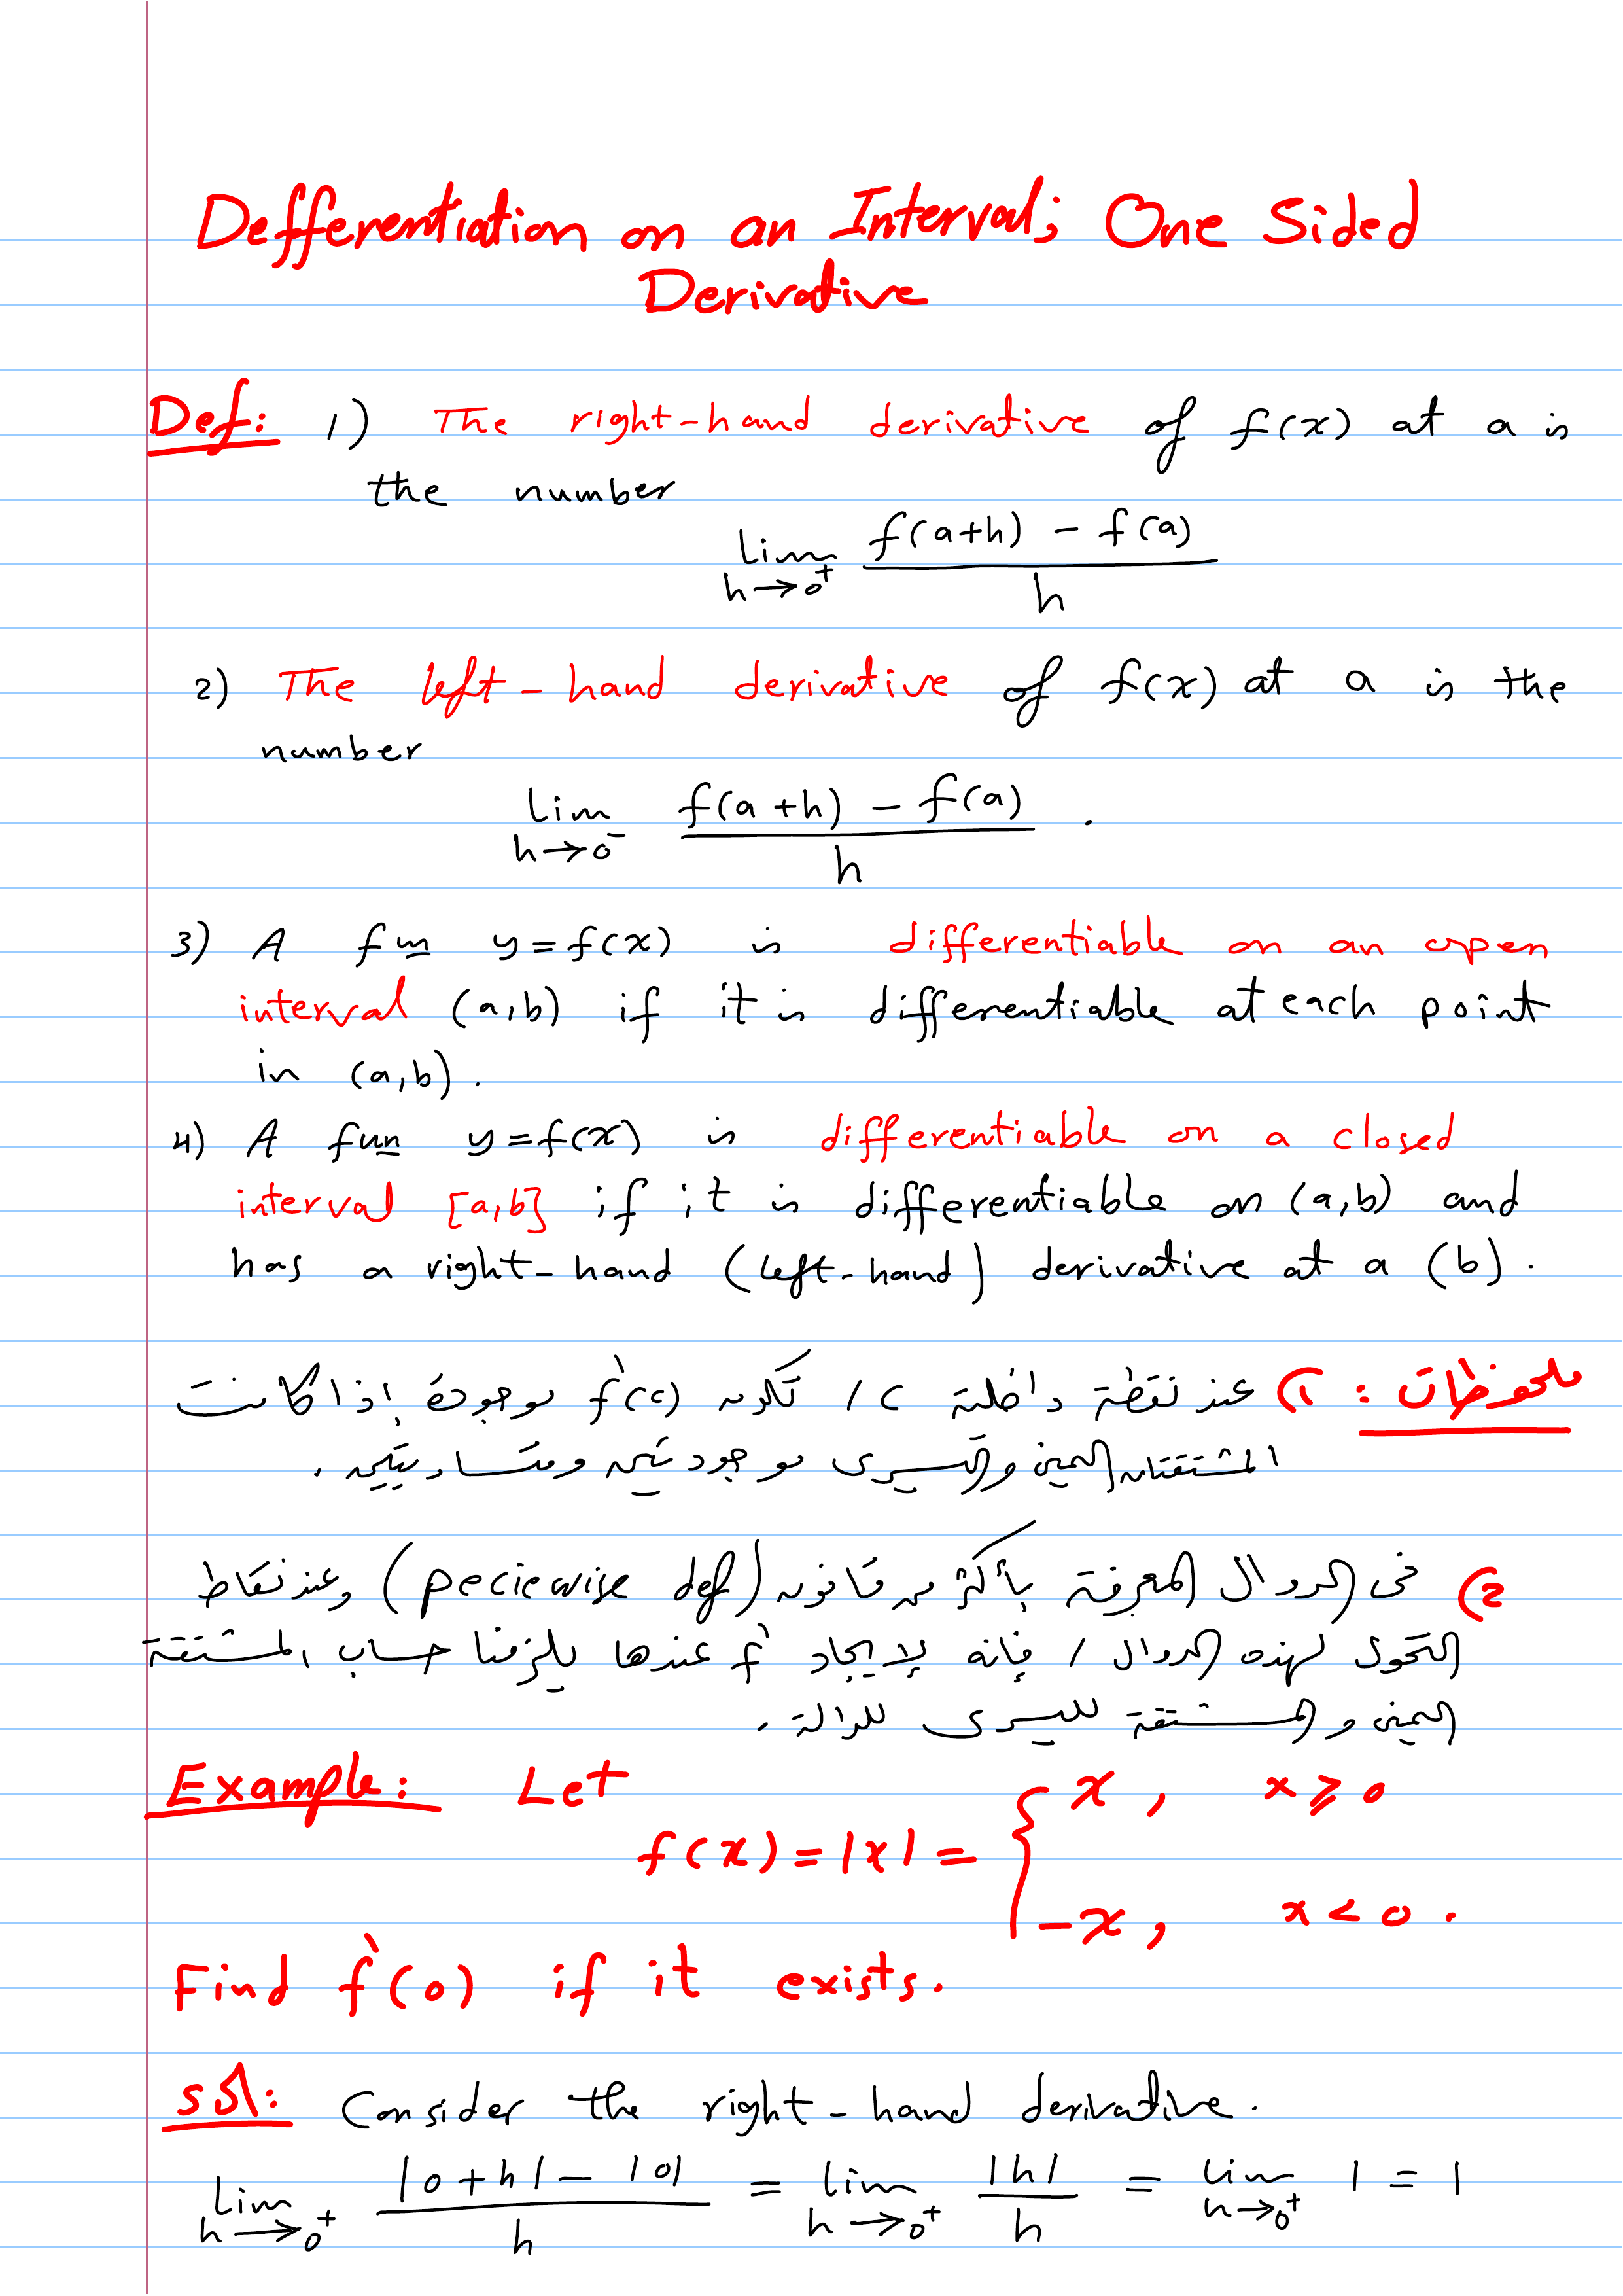 Defferentiation on an Interval; One Sided
Derivative
Def: 1) The right-hand derivative of f(x) at a is
the number
lim h→0⁺ (f(a+h) - f(a)) / h
2) The left-hand derivative of f(x) at a is the
number
lim h→0⁻ (f(a+h) - f(a)) / h .
3) A fun y=f(x) is differentiable on an open
interval (a,b) if it is differentiable at each point
in (a,b).
4) A fun y=f(x) is differentiable on a closed
interval [a,b] if it is differentiable on (a,b) and
has a right-hand (left-hand) derivative at a (b).
ملحوظات : 1) عند نقطة داخلية c ، تكون f`(c) موجودة إذا كانت
المشتقتان اليمنى واليسرى موجودتين ومتساويتين .
2) في الدوال المعرفة بأكثر من قانون (peciewise def) وعند نقاط
التحول لهذه الدوال ، فإنه لإيجاد f` عندها يلزمنا حساب المشتقة
اليمنى والمشتقة لليسرى للدالة .
Example: Let
f(x) = |x| = { x , x ⩾ 0
-x , x < 0 .
Find f`(0) if it exists.
Sol: Consider the right-hand derivative.
lim h→0⁺ (|0+h| - |0|) / h = lim h→0⁺ |h| / h = lim h→0⁺ 1 = 1